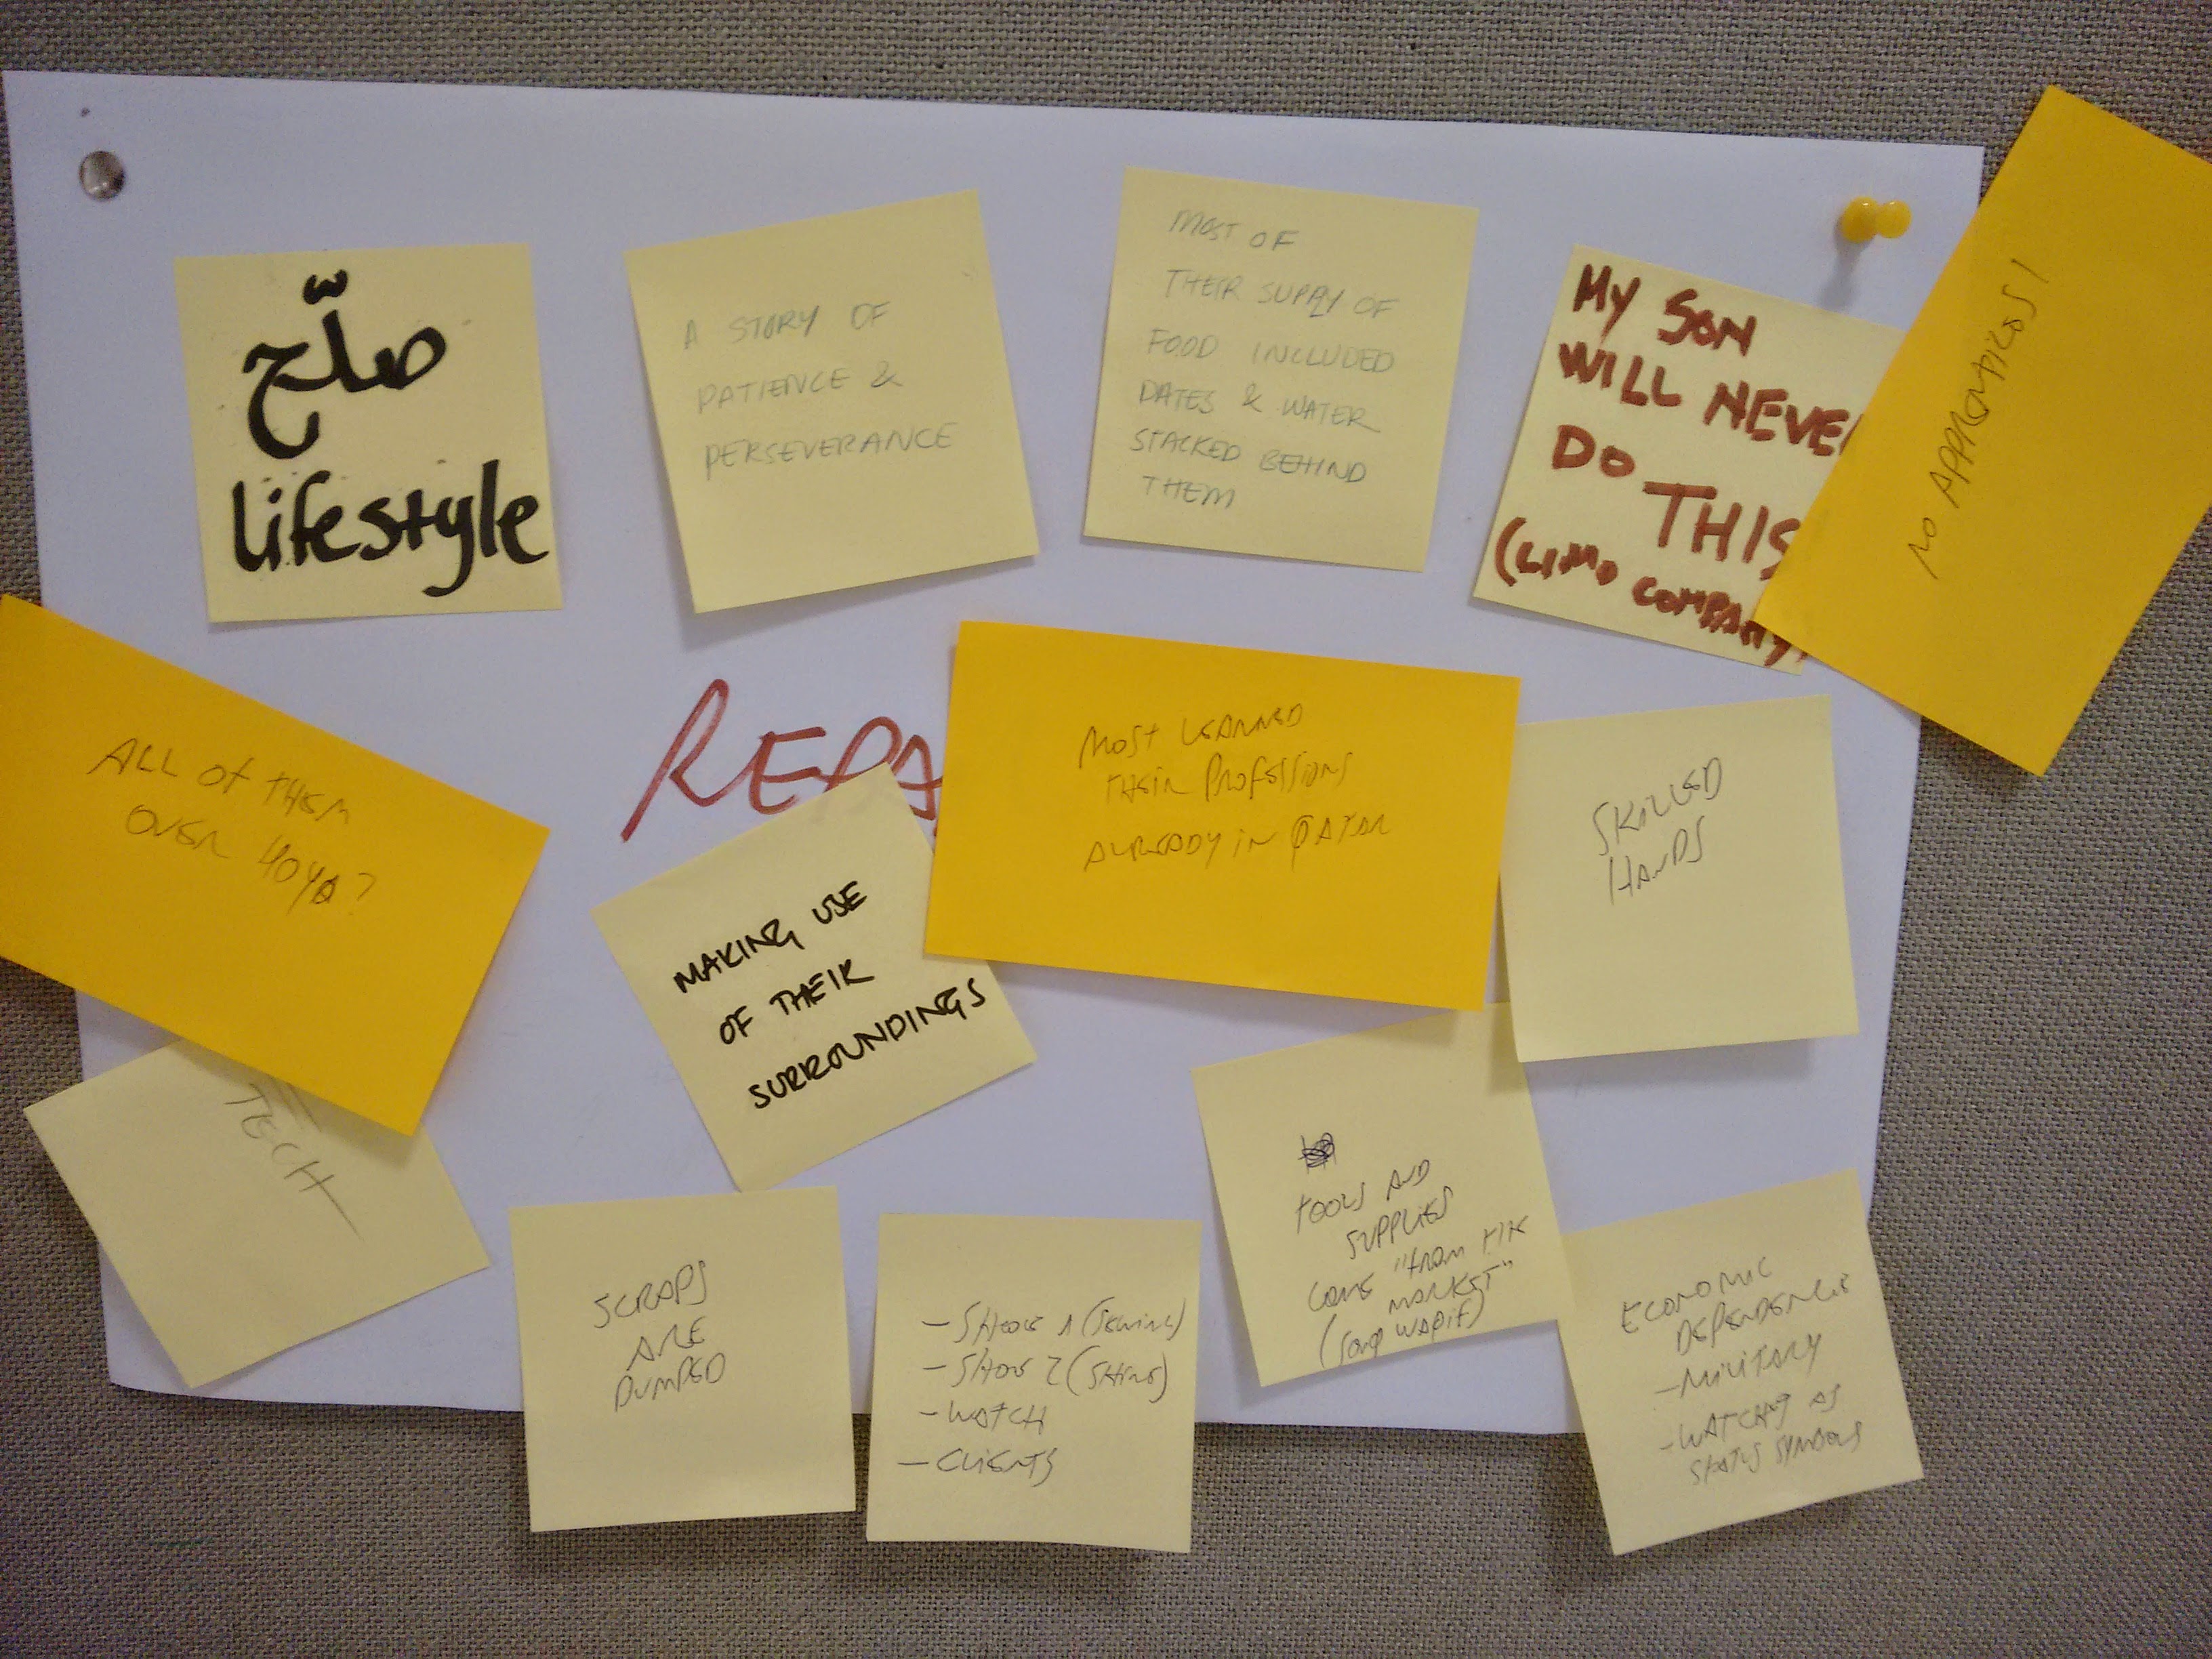 صلّح
lifestyle
A STORY OF
PATIENCE &
PERSEVERANCE
MOST OF
THEIR SUPPLY OF
FOOD INCLUDED
DATES & WATER
STACKED BEHIND
THEM
MY SON
WILL NEVE
DO
THIS
(LIMO COMPANY)
NO APPRENTICES!
ALL OF THEM
OVER 40YO?
REPA
MOST LEARNED
THEIR PROFESSIONS
ALREADY IN QATAR
SKILLED
HANDS
MAKING USE
OF THEIR
SURROUNDINGS
TECH
SCRAPS
ARE
DUMPED
- SHOE 1 (SEWING)
- SHOE 2 (SHINE)
- WATCH
- CLIENTS
TOOLS AND
SUPPLIES
COME "FROM THE
MARKET"
(SOUQ WAQIF)
ECONOMIC
DEPENDENCIE
- MILITARY
- WATCHES AS
STATUS SYMBOLS